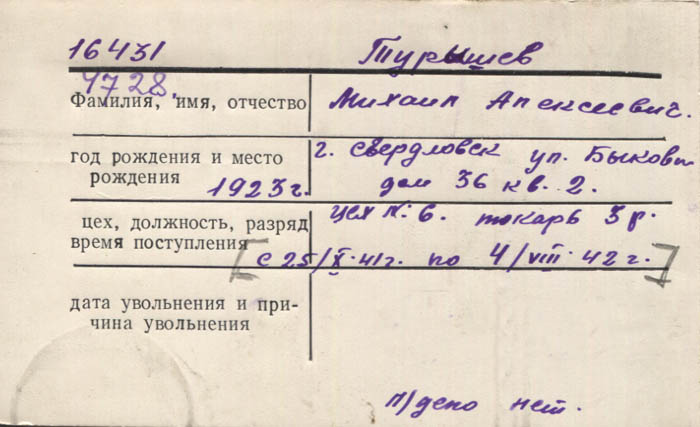 16431 Турышев
4728.
Фамилия, имя, отчество Михаил Алексеевич.
год рождения и место г. Свердловск ул. Быковых
рождения 1923 г. дом 36 кв. 2.
цех, должность, разряд цех №: 6. токарь 3 р.
время поступления
[с 25/X-41 г. по 4/VIII-42 г.]
дата увольнения и при-
чина увольнения
л/дело нет.